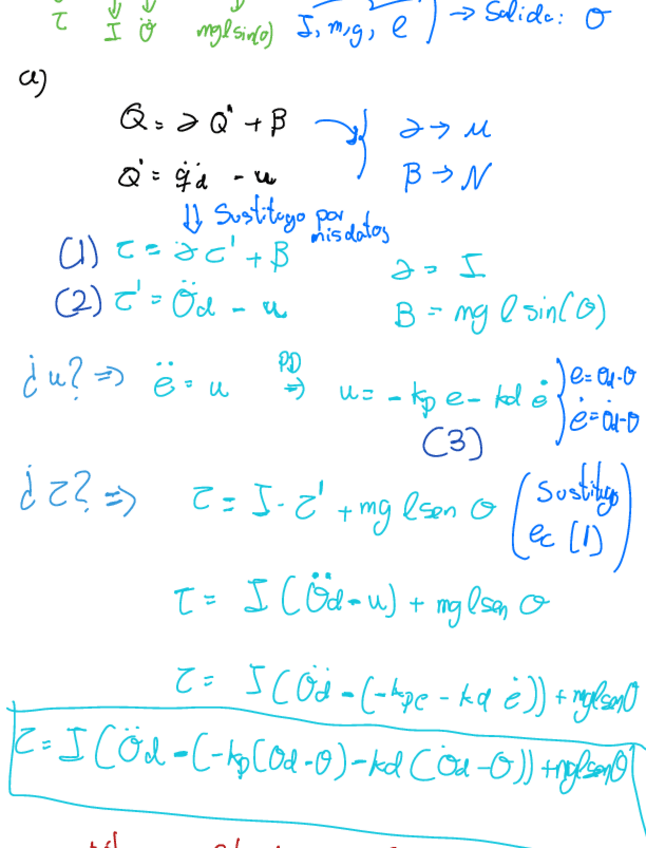 τ I Ö mglsin(o) I, m, g, l ) → Salida: θ
a)
Q = ∂ Q' + β } ∂ → M
Q' = q̈d - u β → N
⇓ Sustituyo por mis datos
(1) τ = ∂ τ' + β ∂ = I
(2) τ' = Öd - u B = mg l sin(θ)
¿u? ⇒ ë = u PD ⇒ u = - kp e - kd ė } e = θd - θ
(3) ė = θ̇d - θ
¿τ? ⇒ τ = I · τ' + mg lsen θ (Sustituyo ec (1))
τ = I (Öd - u) + mg lsen θ
τ = I (Öd - (-kpe - kd ė)) + mglsenθ
τ = I (Öd - (-kp(θd - θ) - kd (θ̇d - θ)) + mglsenθ